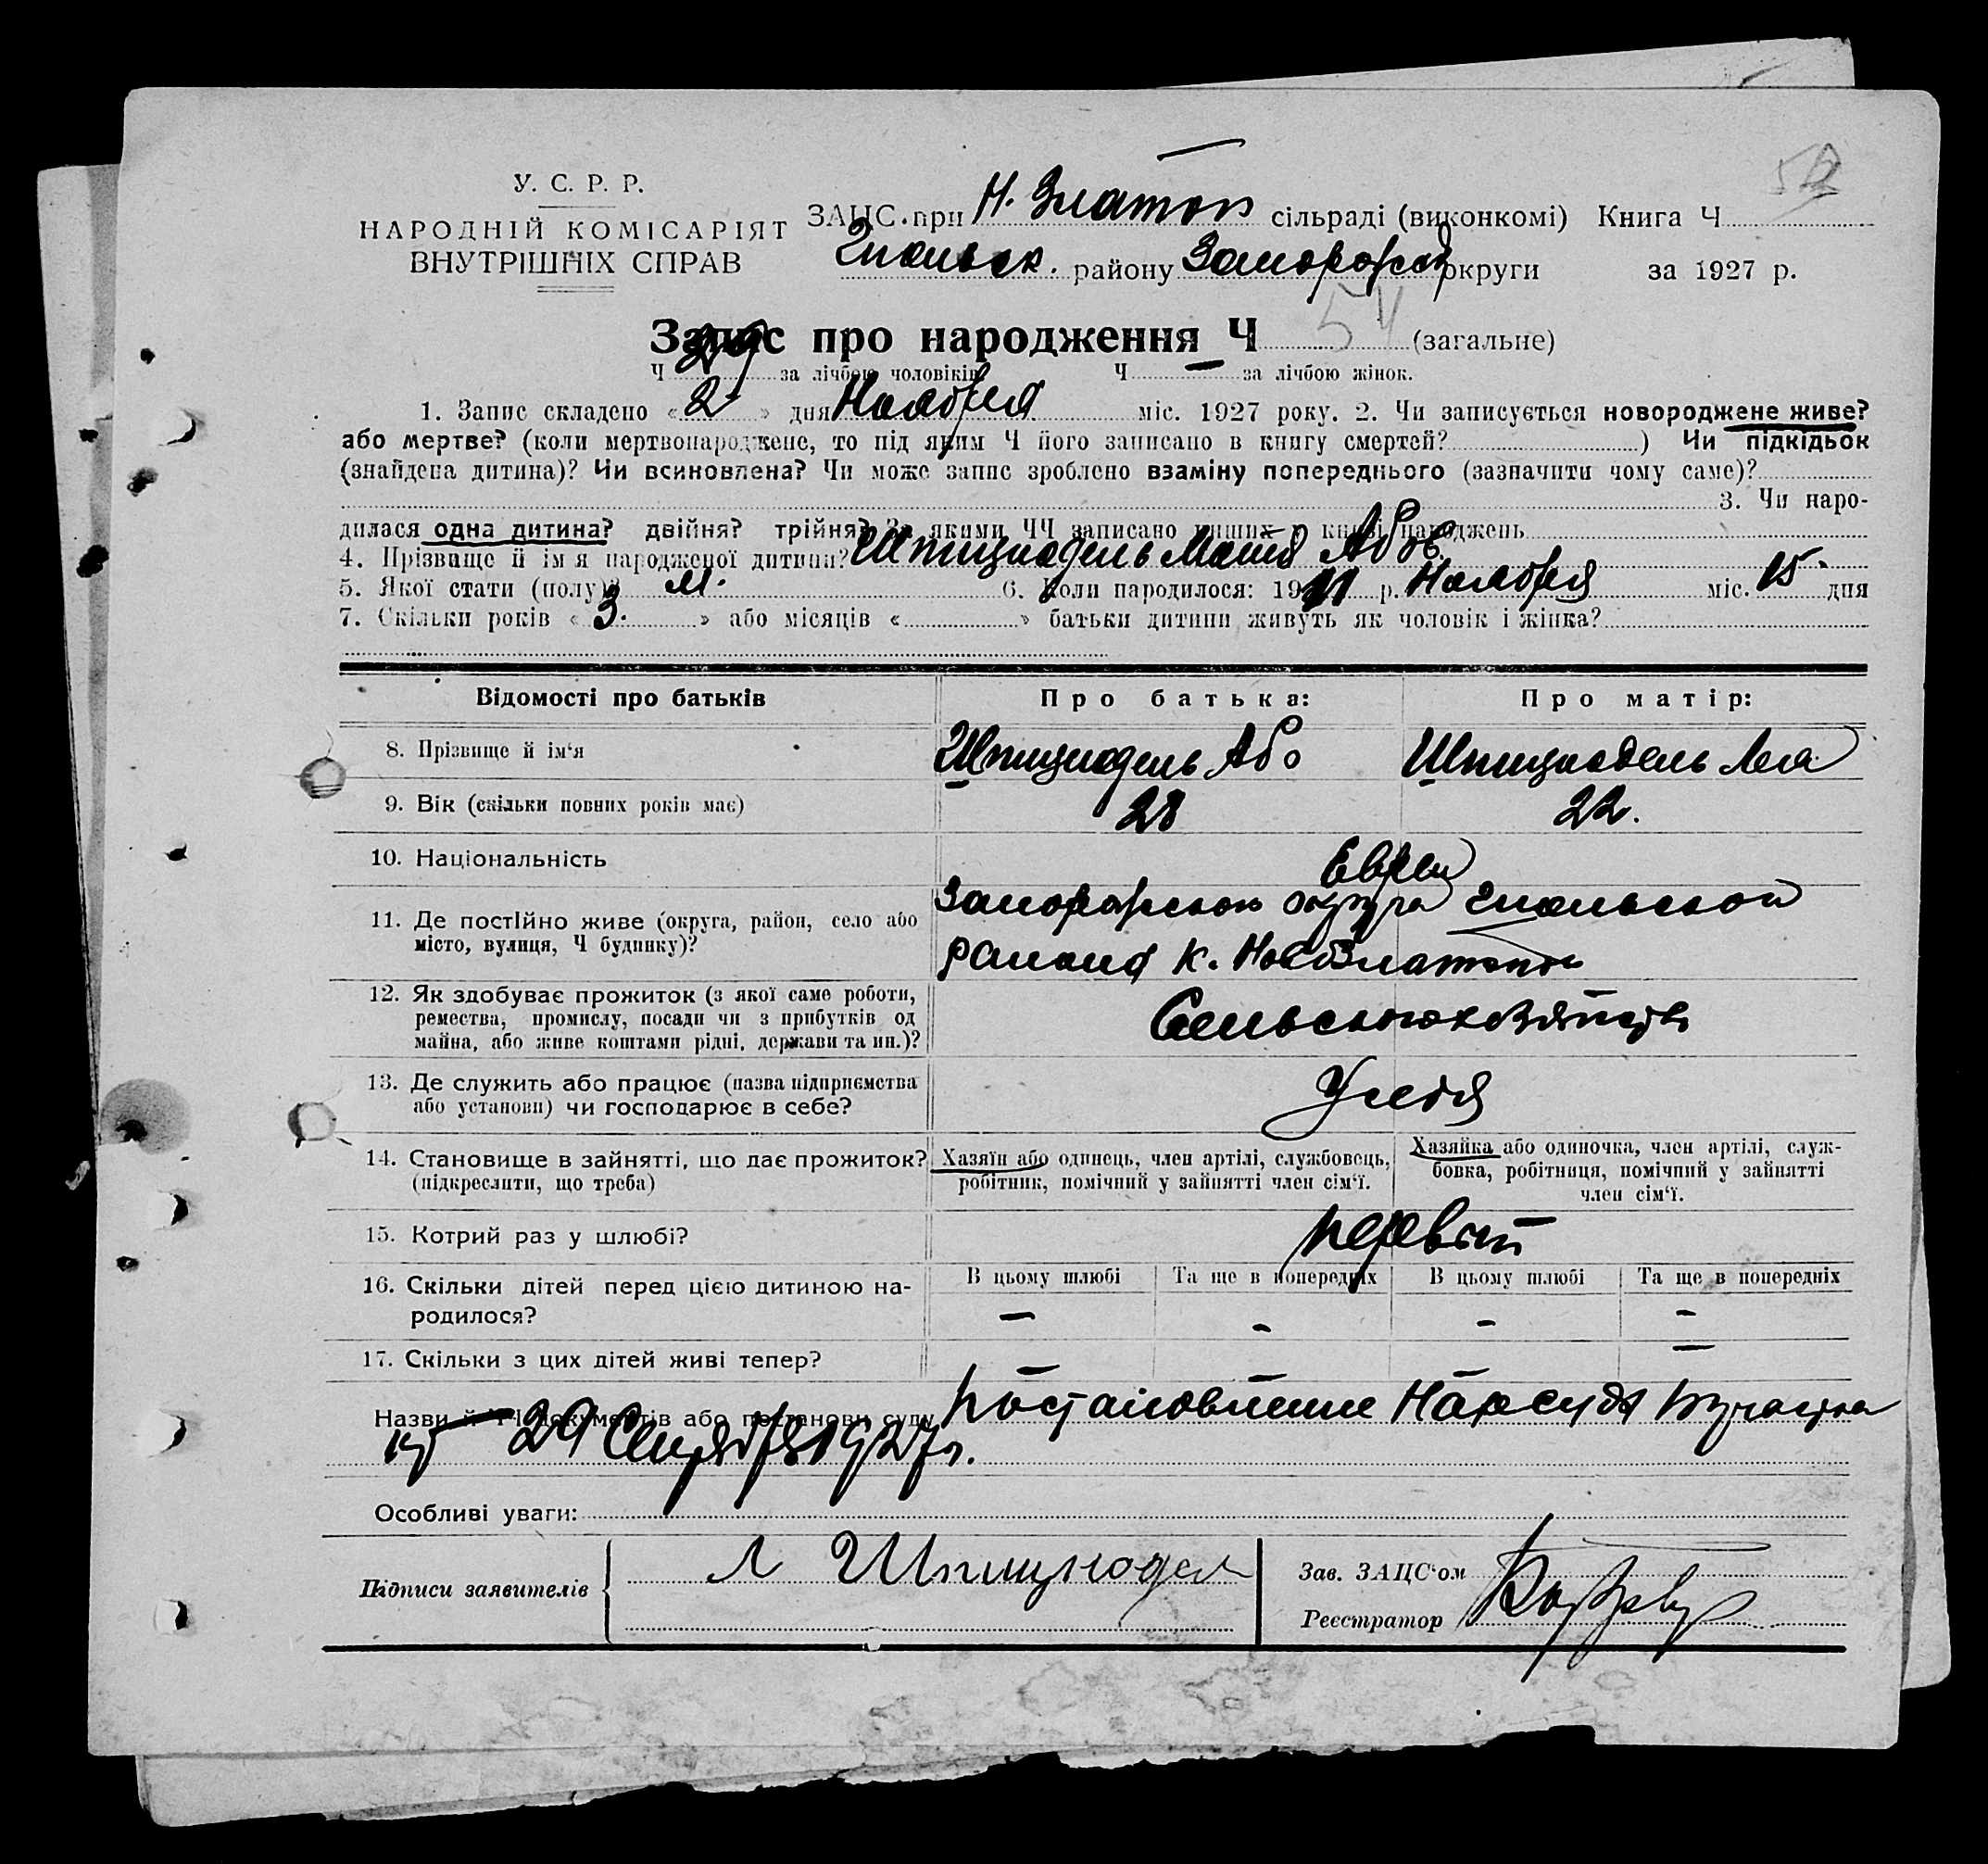 52
У. С. Р. Р.
НАРОДНІЙ КОМІСАРІЯТ
ВНУТРІШНІХ СПРАВ
ЗАЦС при Н. Златоп сільраді (виконкомі) Книга Ч
району Запорож округи за 1927 р.
Запис про народження Ч 54 (загальне)
Ч 29 за лічбою чоловіків Ч — за лічбою жінок.
1. Запис складено « 2 » дня Ноября міс. 1927 року. 2. Чи записується новороджене живе?
або мертве? (коли мертвонароджене, то під яким Ч його записано в книгу смертей? ) Чи підкідьок
(знайдена дитина)? Чи всиновлена? Чи може запис зроблено взаміну попереднього (зазначити чому саме)?
3. Чи наро-
дилася одна дитина? двійня? трійня? За якими ЧЧ записано инших у книзі народжень
4. Прізвище й ім'я народженої дитини? Шпицнадель Абов.
5. Якої стати (полу)? м. 6. Коли народилося: 19 р. Ноября міс. 15. дня
7. Скільки років « 3. » або місяців « » батьки дитини живуть як чоловік і жінка?
Відомості про батьків Про батька: Про матір:
8. Прізвище й ім‘я Шпицнадель Або Шпицнадель Лея
9. Вік (скільки повних років має) 28 22.
10. Національність Евреи
11. Де постійно живе (округа, район, село або
місто, вулиця, Ч будинку)?
Запорожской округа
района к. НовоЗлатополь
12. Як здобуває прожиток (з якої саме роботи,
ремества, промислу, посади чи з прибутків од
майна, або живе коштами рідні, держави та ин.)?
13. Де служить або працює (назва підприємства
або установи) чи господарює в себе?
У себя
14. Становище в зайнятті, що дає прожиток?
(підкреслити, що треба)
Хазяїн або одинець, член артілі, службовець,
робітник, помічний у зайнятті член сім‘ї.
Хазяйка або одиночка, член артілі, служ-
бовка, робітниця, помічний у зайнятті
член сім‘ї.
15. Котрий раз у шлюбі? первый
16. Скільки дітей перед цією дитиною на-
родилося?
В цьому шлюбі Та ще в попередніх В цьому шлюбі Та ще в попередніх
— - - -
17. Скільки з цих дітей живі тепер? — — — —
Назви й ЧЧ документів або постанови суду Постановление Нарсуда
29 Сентября 1927 г.
Особливі уваги:
Підписи заявителів Л Шпицнодел
Зав. ЗАЦС‘ом
Реєстратор